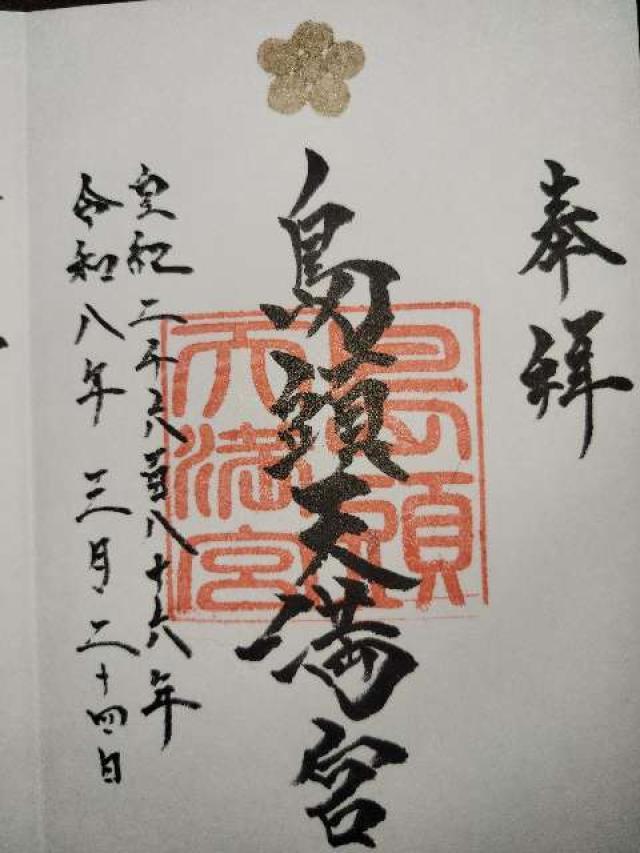 奉拝
島頭天満宮
島頭
天満宮
皇紀二千六百八十六年
令和八年 三月二十四日